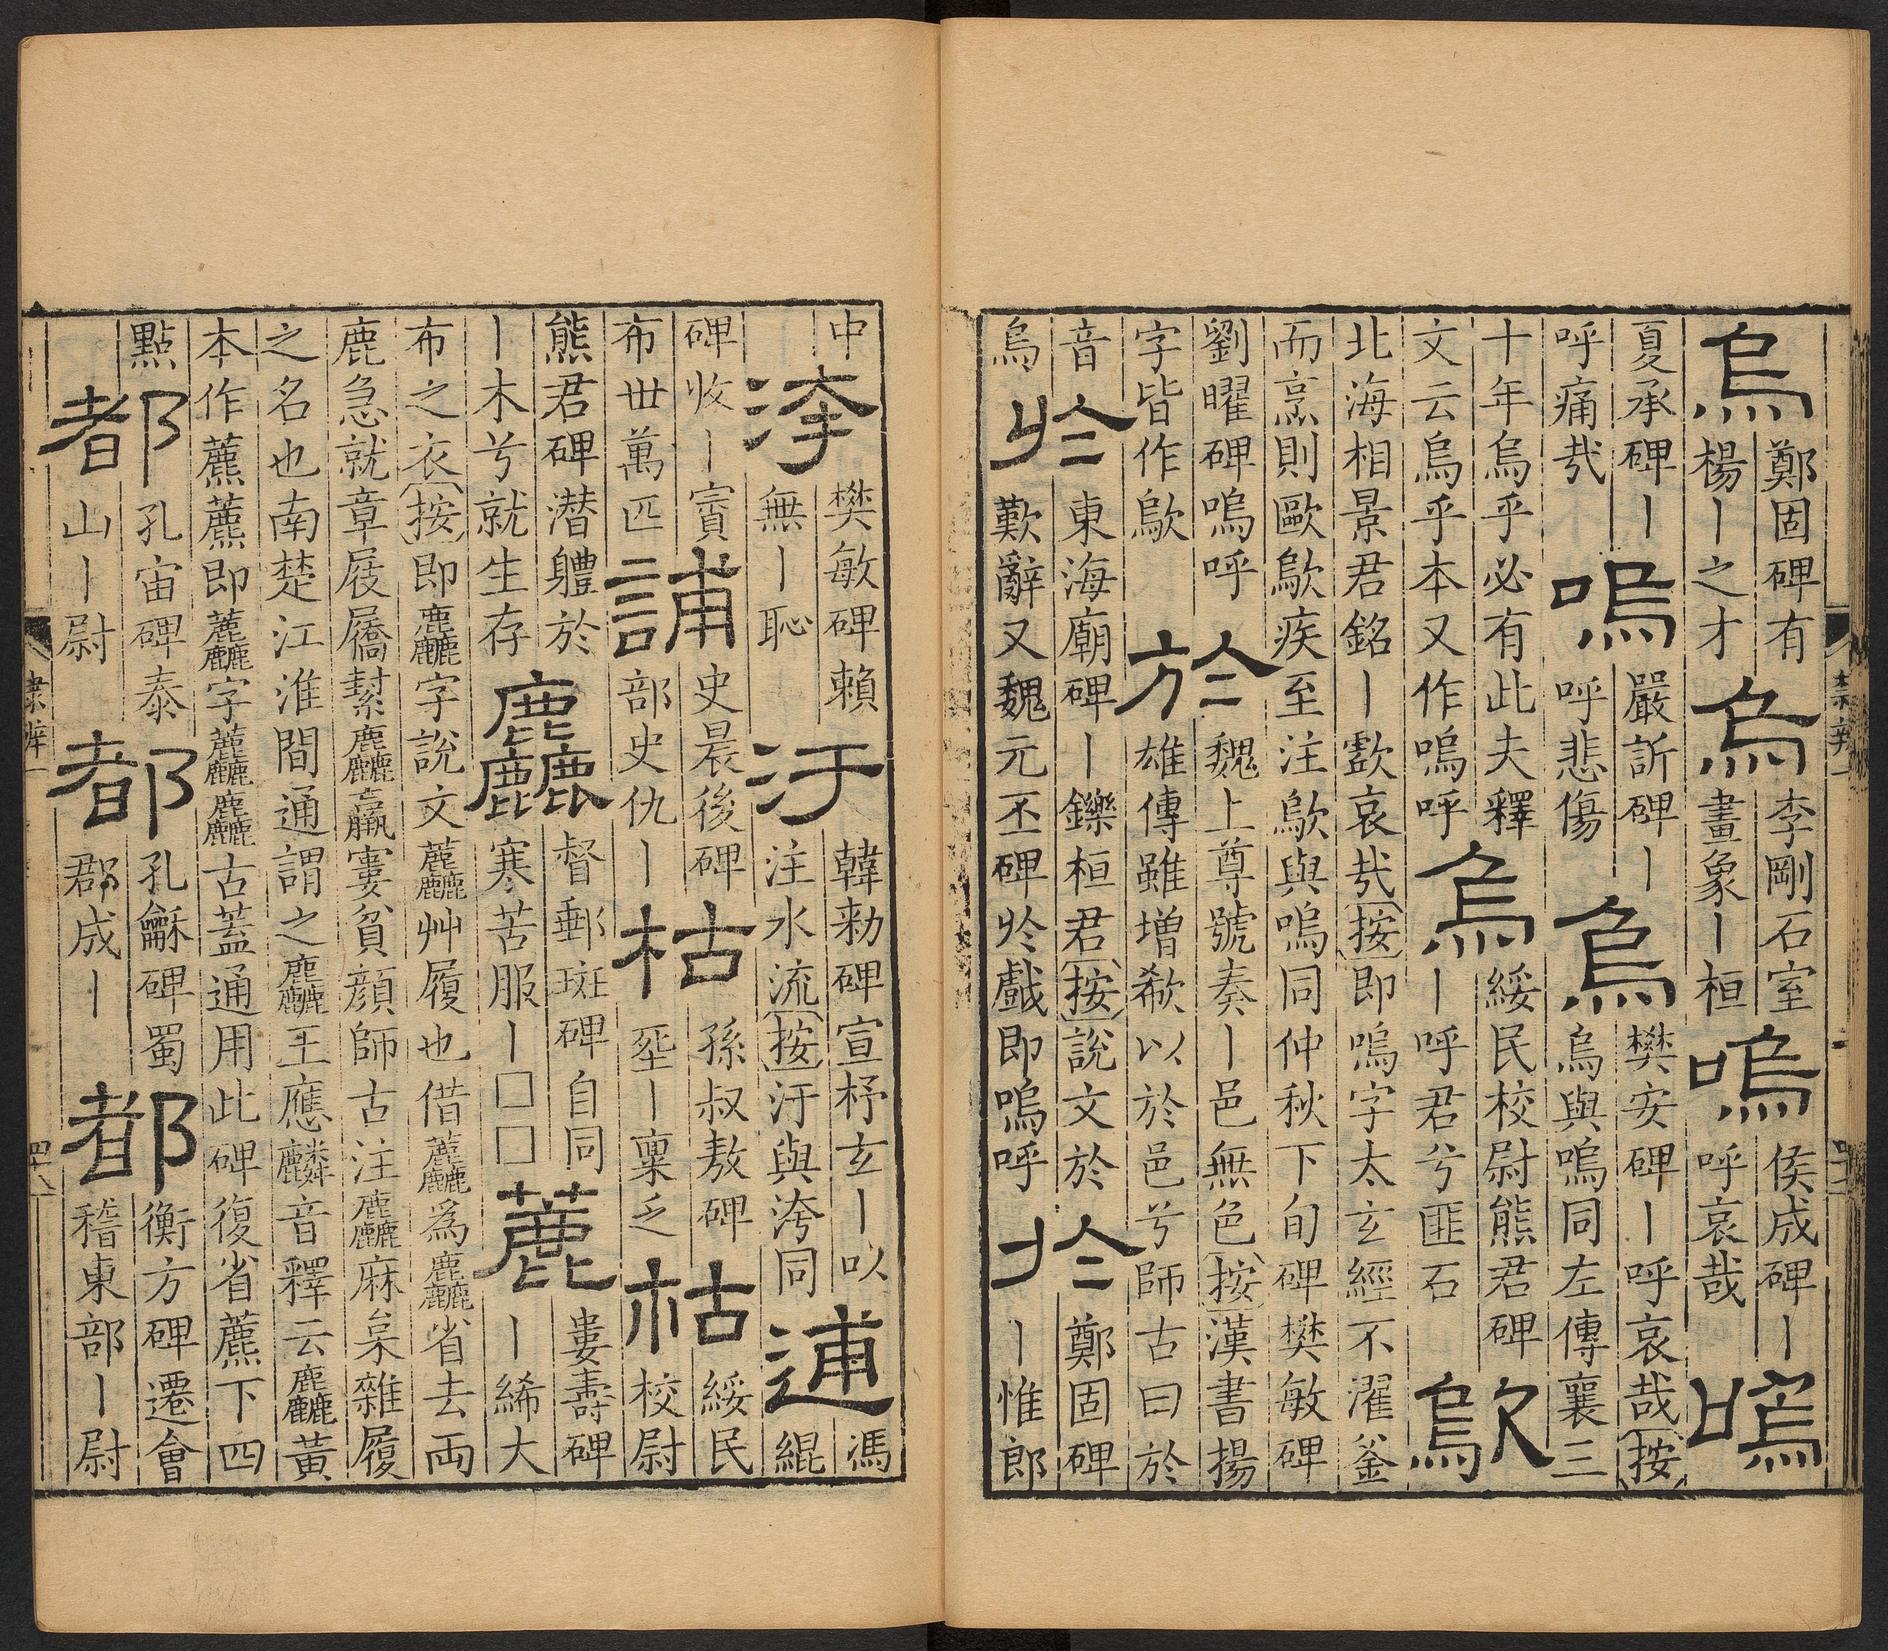 烏 鄭固碑有楊｜之才 烏 李剛石室畫象｜桓 嗚 侯成碑｜呼哀哉 嗚
夏承碑｜呼痛㦲 嗚 嚴訢碑｜呼悲傷 烏 樊安碑｜呼哀哉按烏與嗚同左傳襄三
十年烏乎必有此夫釋文云烏乎本又作嗚呼 烏 綏民校尉熊君碑｜呼君兮匪石 歍
北海相景君銘｜歔哀㦲按即嗚字太玄經不濯釜
而烹則歐歍疾至注歍與嗚同仲秋下旬碑樊敏碑
劉曜碑嗚呼字皆作歍 於 魏上尊號奏｜邑無色按漢書揚雄傳雖增欷以於邑兮師古曰於
音烏 於 東海廟碑｜鑠桓君按說文於歎辭又魏元丕碑於戲即嗚呼 於 鄭固碑｜惟郎
中 洿 樊敏碑賴無｜恥 汙 韓勑碑宣杼玄｜以注水流按汙與洿同 逋 馮緄
碑收｜賨布丗萬匹 誧 史晨後碑部史仇｜ 枯 孫叔敖碑埊｜稟乏 枯 綏民校尉
熊君碑潛軆於｜木兮就生存 麤 督郵斑碑自同寒苦服｜□□ 麄 婁壽碑｜絺大
布之衣按即麤字說文𪋻艸履也借𪋻爲麤省去両
鹿急就章屐屩絜麤羸窶貧顔師古注麤麻枲雜履
之名也南楚江淮間通謂之麤王應麟音釋云麤黃
本作藨藨即𪋻字𪋻麤古蓋通用此碑復省藨下四
點 都 孔宙碑泰山｜尉 都 孔龢碑蜀郡成｜ 都 衡方碑遷會稽東部｜尉
隸辨一